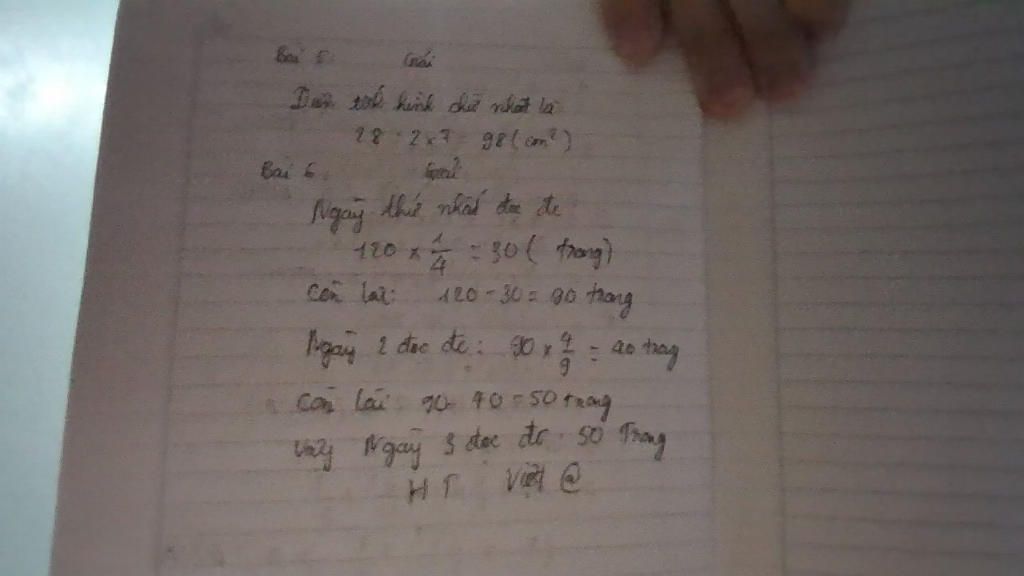 Bài 5: Giải
Diện tích hình chữ nhật là
28 : 2 x 7 = 98 (cm²)
Bài 6: Giải
Ngày thứ nhất đọc đc
120 x 1/4 = 30 ( trang)
Còn lại: 120 - 30 = 90 trang
Ngày 2 đọc đc: 90 x 4/9 = 40 trang
Còn lại: 90 - 40 = 50 trang
Vậy Ngày 3 đọc đc 50 Trang
H T Việt @